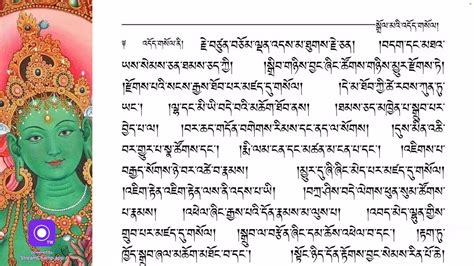 སྒྲོལ་མའི་འདོད་གསོལ།
༄ འདོད་གསོལ་ནི། རྗེ་བཙུན་བཅོམ་ལྡན་འདས་མ་ཐུགས་རྗེ་ཅན། །བདག་དང་མཐའ་
ཡས་སེམས་ཅན་ཐམས་ཅད་ཀྱི། །སྒྲིབ་གཉིས་བྱང་ཞིང་ཚོགས་གཉིས་མྱུར་རྫོགས་ཏེ།
།རྫོགས་པའི་སངས་རྒྱས་ཐོབ་པར་མཛད་དུ་གསོལ། །དེ་མ་ཐོབ་ཀྱི་ཚེ་རབས་ཀུན་ཏུ་
ཡང་། །ལྷ་དང་མི་ཡི་བདེ་བའི་མཆོག་ཐོབ་ནས། །ཐམས་ཅད་མཁྱེན་པ་སྒྲུབ་པར་
བྱེད་པ་ལ། །བར་ཆད་གདོན་བགེགས་རིམས་དང་ནད་ལ་སོགས། །དུས་མིན་འཆི་
བར་གྱུར་པ་སྣ་ཚོགས་དང་། །རྨི་ལམ་ངན་དང་མཚན་མ་ངན་པ་དང་། །འཇིགས་པ་
བརྒྱད་སོགས་ཉེ་བར་འཚེ་བ་རྣམས། །མྱུར་དུ་ཞི་ཞིང་མེད་པར་མཛད་དུ་གསོལ།
།འཇིག་རྟེན་འཇིག་རྟེན་ལས་ནི་འདས་པ་ཡི། །བཀྲ་ཤིས་བདེ་ལེགས་ཕུན་སུམ་ཚོགས་
པ་རྣམས། །འཕེལ་ཞིང་རྒྱས་པའི་དོན་རྣམས་མ་ལུས་པ། །འབད་མེད་ལྷུན་གྱིས་
གྲུབ་པར་མཛད་དུ་གསོལ། །སྒྲུབ་ལ་བརྩོན་ཞིང་དམ་ཆོས་འཕེལ་བ་དང་། །རྟག་ཏུ་
ཁྱོད་སྒྲུབ་ཞལ་མཆོག་མཐོང་བ་དང་། །སྟོང་ཉིད་དོན་རྟོགས་བྱང་སེམས་རིན་པོ་ཆེ།